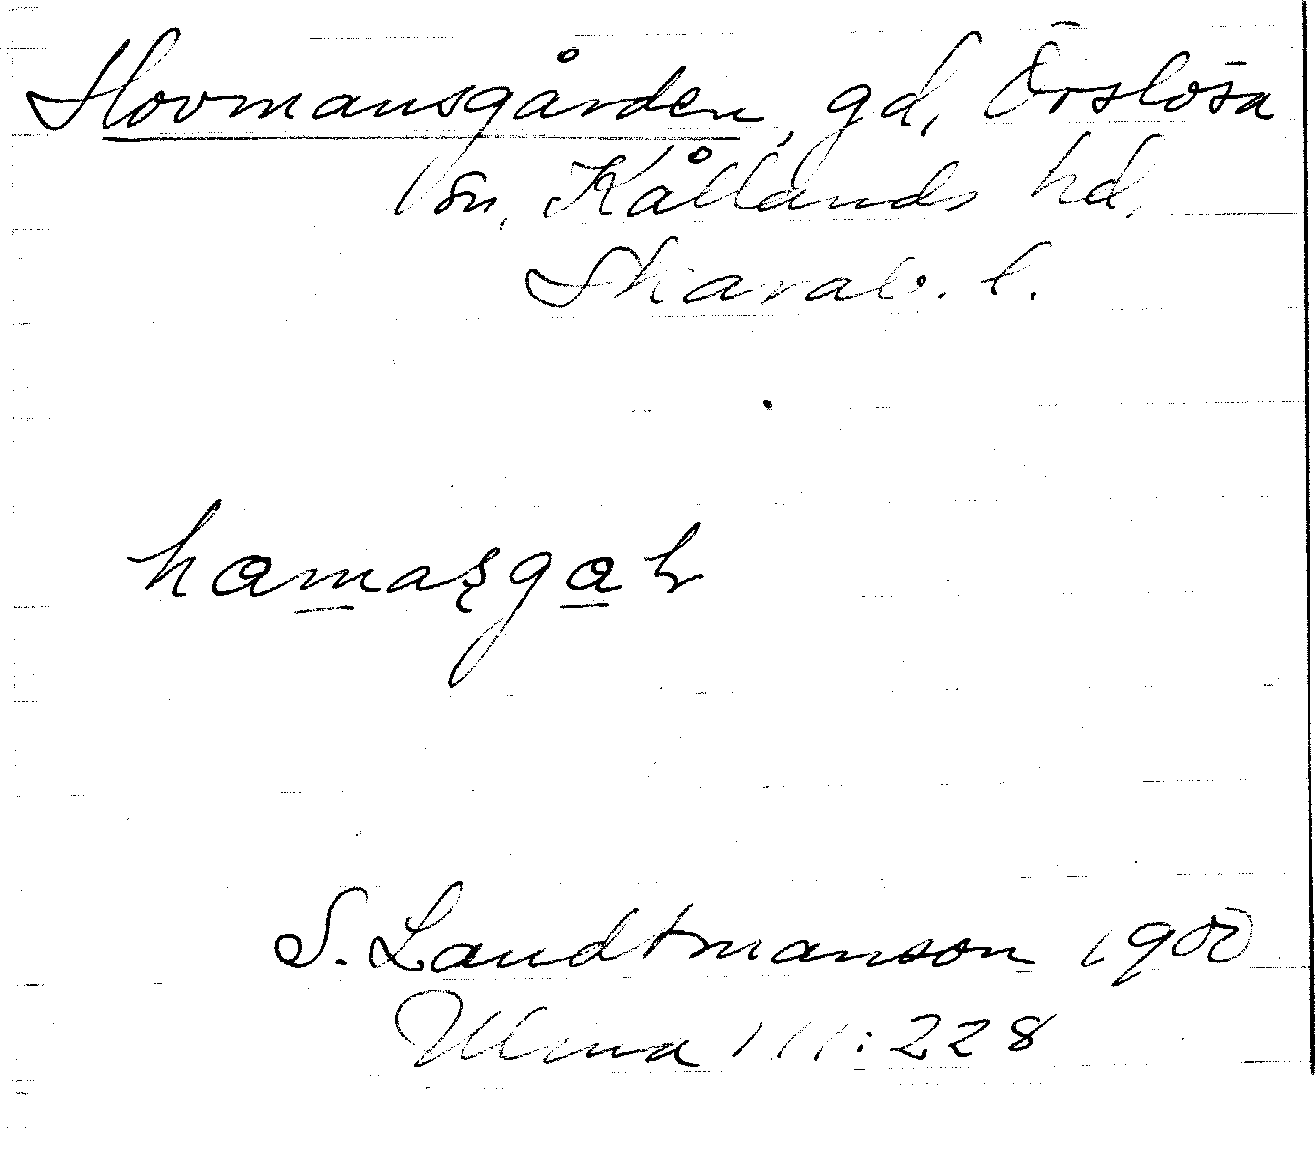 Hovmansgården, gd, Örslösa
sn, Kållands hd,
Skarab. l.
hamaʂgaɽ
S. Landtmanson 1900
Ulma 111:228